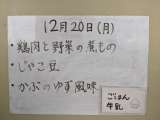 12月20日(月)
・鶏肉と野菜の煮もの
・じゃこ豆
・かぶのゆず風味
ごはん
牛乳